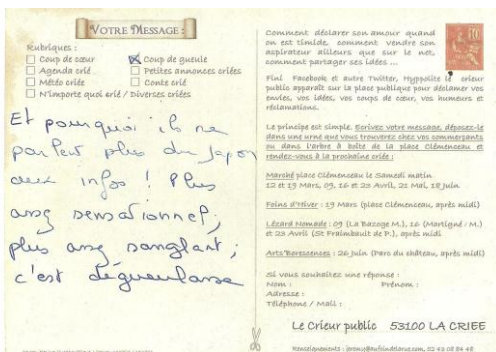 VOTRE MESSAGE :
Rubriques :
Coup de cœur
Coup de gueule
Agenda crié
Petites annonces criées
Météo criée
Conte crié
N'importe quoi crié / Diverses criées
Et pourquoi ils ne
parlent plus du Japon
aux infos ! Plus
assez sensationnel,
plus assez sanglant ;
c'est dégueulasse
Comment déclarer son amour quand
on est timide, comment vendre son
aspirateur ailleurs que sur le net,
comment partager ses idées ...
Fini Facebook et autre Twitter, Hyppolite le crieur
public apparaît sur la place publique pour déclamer vos
envies, vos idées, vos coups de cœur, vos humeurs et
réclamations.
Le principe est simple. Ecrivez votre message, déposez-le
dans une urne que vous trouverez chez vos commerçants
ou dans l'arbre à boîte de la place Clémenceau et
rendez-vous à la prochaine criée :
Marché place Clémenceau le Samedi matin
12 et 19 Mars, 09, 16 et 23 Avril, 21 Mai, 18 Juin
Foins d'Hiver : 19 Mars (place Clémenceau, après midi)
Lézard Nomade : 09 (La Bazoge M.), 16 (Martigné / M.)
et 23 Avril (St Fraimbault de P.), après midi
Arts'Borescences : 26 Juin (Parc du château, après midi)
Si vous souhaitez une réponse :
Nom : Prénom :
Adresse :
Téléphone / Mail :
Le Crieur public 53100 LA CRIEE